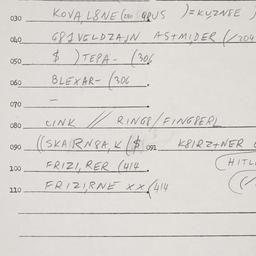 030 KOVA,L8NE
040 G81VELDZA,N ASTMIDER (/204
050 $ )TEPA- (306
060 BLEXAR- (306
070 -
080 LINK // RINGS/FINGSERL
090 ((SKAIRN8A,K ($ 091 K8IRZ+NER
(HITL
100 FRIZI,RER (414
110 FRIZI,RNE XX (414